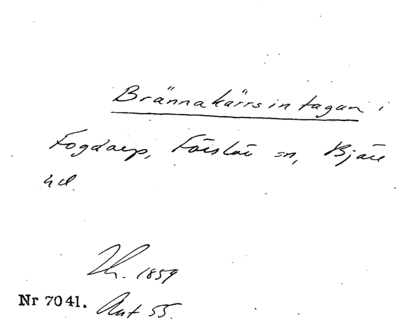 Brännakärrsintagan i
Fogdarp, Förslöv sn, Bjäre
hd.
1859
Nr 7041. Ant 55.